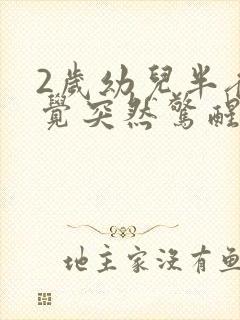 2歲幼兒半夜
覺突然驚醒
地主家沒有魚